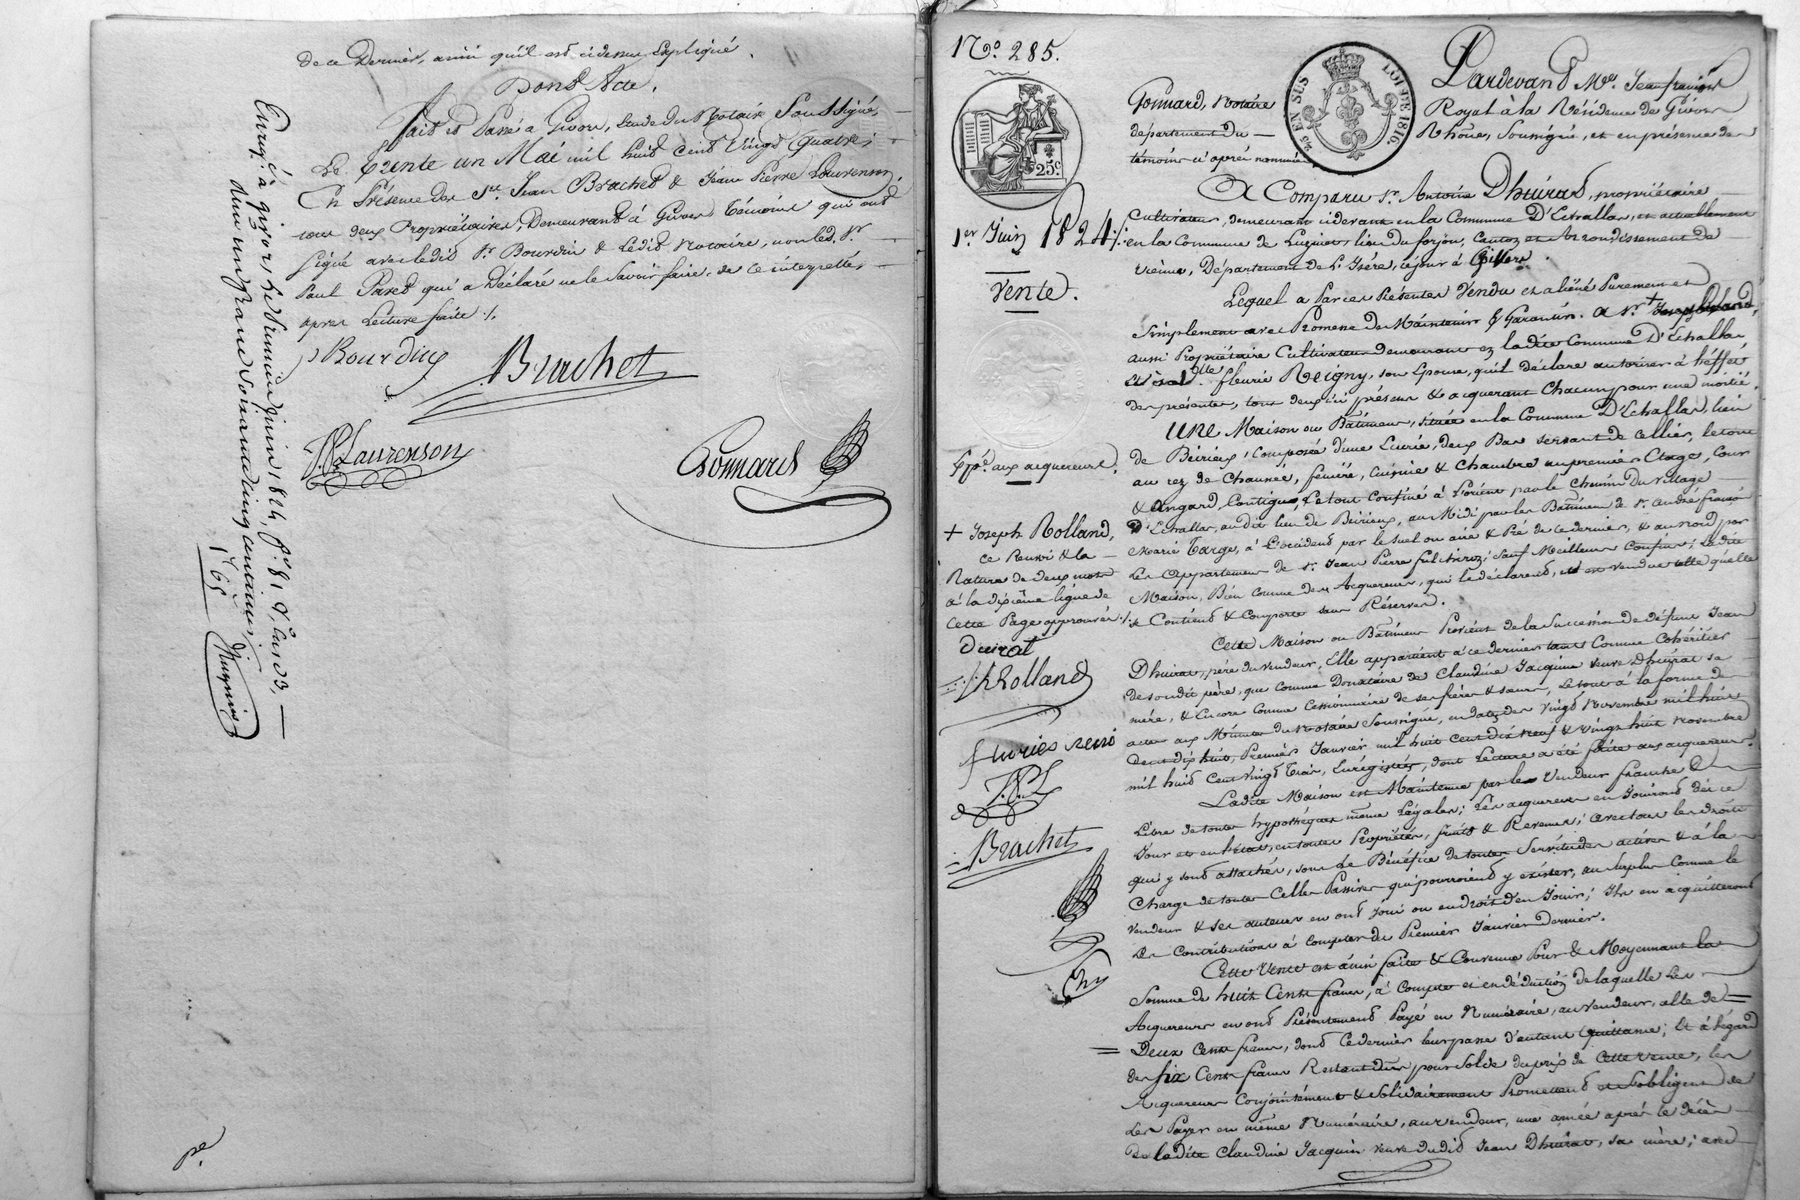 de ce Dernier, ainsi qu'il est cidessus Expliqué.
Dont Acte.
Fait et Passé à Givors, Etude du Notaire Soussigné,
Le trente un Mai mil huit cent Vingt Quatre;
En Présence des Srs Jean Brachet & Jean Pierre Laurenson,
tous deux Propriétaires, Demeurant à Givors Témoins qui ont
signé avec ledit Sr Bourdin & Ledit Notaire, non led. Sr
Paul qui a Déclaré ne le Savoir faire, de ce interpellés
après Lecture faite ./.
Bourdin
Brachet
J.P. Laurenson
Gonnard
Enreg. à givors, le premier juin 1824, fo 81
un franc soixante cinq centimes,
1f 65
pe
No 285.
25c
EN SUS
LOI DE 1816
Pardevant Me Jean françois
Gonnard, Notaire Royal à la Résidence de Givors
département du Rhône, Soussigné, et en présence des
témoins ci après nommés
A Comparu Sr Antoine Dhuirat, propriétaire
Cultivateur, demeurant cidevant en la Commune D'Echallas, et actuellement
en la Commune de Luzinay, lieu du Canton et Arrondissement de
Vienne, Département de L'Isère, ce jour à Givors.
1er Juin 1824 ./.
Vente.
Lequel a Par ces Présentes Vendu et aliéné Purement et
Simplement avec Promesse de Maintenir & Garantir. à Sr +
aussi Propriétaire Cultivateur demeurant en ladite Commune D'Echallas,
fleurie Reigny, son Epouse, qu'il déclare autoriser à l'effet
des présentes, tous deux ici présens & acquerant Chacun pour une moitié.
UNE Maison ou Bâtiment, située en la Commune D'Echallas, lieu
de Beirieux; Composée d'une Ecurie, deux Bas servant de Cellier, le tout
au rez de Chaussée, fenière, Cuisine & Chambre au premier Etage, Cour
& Angard, Contigus, le tout Confiné à l'orient par le Chemin du Village
D'Echallas, au dit lieu de Beirieux, au Midi par les Bâtimens de Sr André françois
Marie Targe, à L'occident par le Suel ou aire & Pré de ce dernier, & au nord par
Les Appartemens de Sr Jean Pierre fulchiron; Sauf Meilleurs Confins; Ladite
Maison, Bien Connue des Acquereurs, qui le déclarent, et est vendue telle qu'elle
se Contient & Comporte sans Réserves.
Expon aux acquereurs.
+ Joseph Rolland,
ce Renvoi & la
Rature de deux mots
à la dixième ligne de
Cette Page approuvés ./.
Duirat
Jh Rolland
J.P.L
Brachet
Cette Maison ou Bâtiment Provient de la Succession de défunt Jean
Dhuirat, père du vendeur, Elle appartient à ce dernier tant Comme Cohéritier
de son dit père, que comme Donataire de Claudine Jacquin veuve Dhuirat sa
mère, & Encore Comme Cessionnaire de ses frères & sœurs, le tout à la forme des
actes aux Minutes du Notaire Soussigné, en dates des Vingt Novembre mil huit
Cent dix huit, Premier Janvier mil huit cent dix neuf & Vingt huit Novembre
mil huit Cent Vingt Trois, Enregistrés, dont Lecture a été faite aux acquereurs.
Ladite Maison est Maintenue par le Vendeur franche &
Libre de toutes hypothèques même Légales; Les acquereurs en Jouiront dès ce
Jour et en toutes Propriétés, fruits & Revenus; avec tous les droits
qui y sont attachés, sous le Bénéfice de toutes Servitudes actives & à la
Charge de toutes Celles Passives qui pourroient y exister, au surplus comme le
Vendeur & ses auteurs en ont Joui ou eu droit d'en Jouir; Ils en acquitteront
Les Contributions à Compter du Premier Janvier Dernier.
Cette Vente est ainsi faite & Convenue Pour & Moyennant la
Somme de huit Cents francs, à Compte et en déduction de laquelle Les
Acquereurs en ont Présentement Payé en Numéraire, au vendeur, celle de
Deux Cents francs, dont Ce dernier leur passe d'autant Quittance; Et à l'égard
des six Cents francs Restant Dus pour Solde du prix de Cette vente, les
Acquereurs Conjointement & Solidairement Promettent et S'obligent de
Les Payer en même Numéraire, au vendeur, une année après le décès
de ladite Claudine Jacquin veuve dudit Jean Dhuirat, sa mère; avec